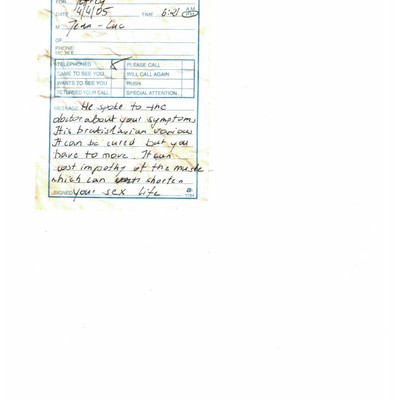 FOR
DATE 4/4/05 TIME 6:21 A.M. P.M.
M Jean-Luc
OF
PHONE
MOBILE
TELEPHONED PLEASE CALL
CAME TO SEE YOU WILL CALL AGAIN
WANTS TO SEE YOU RUSH
RETURNED YOUR CALL SPECIAL ATTENTION
MESSAGE He spoke to the
doctor about your symptoms
It is
It can be cured but you
have to move. It can
of the muscle
which can shorten
SIGNED your sex life
1184